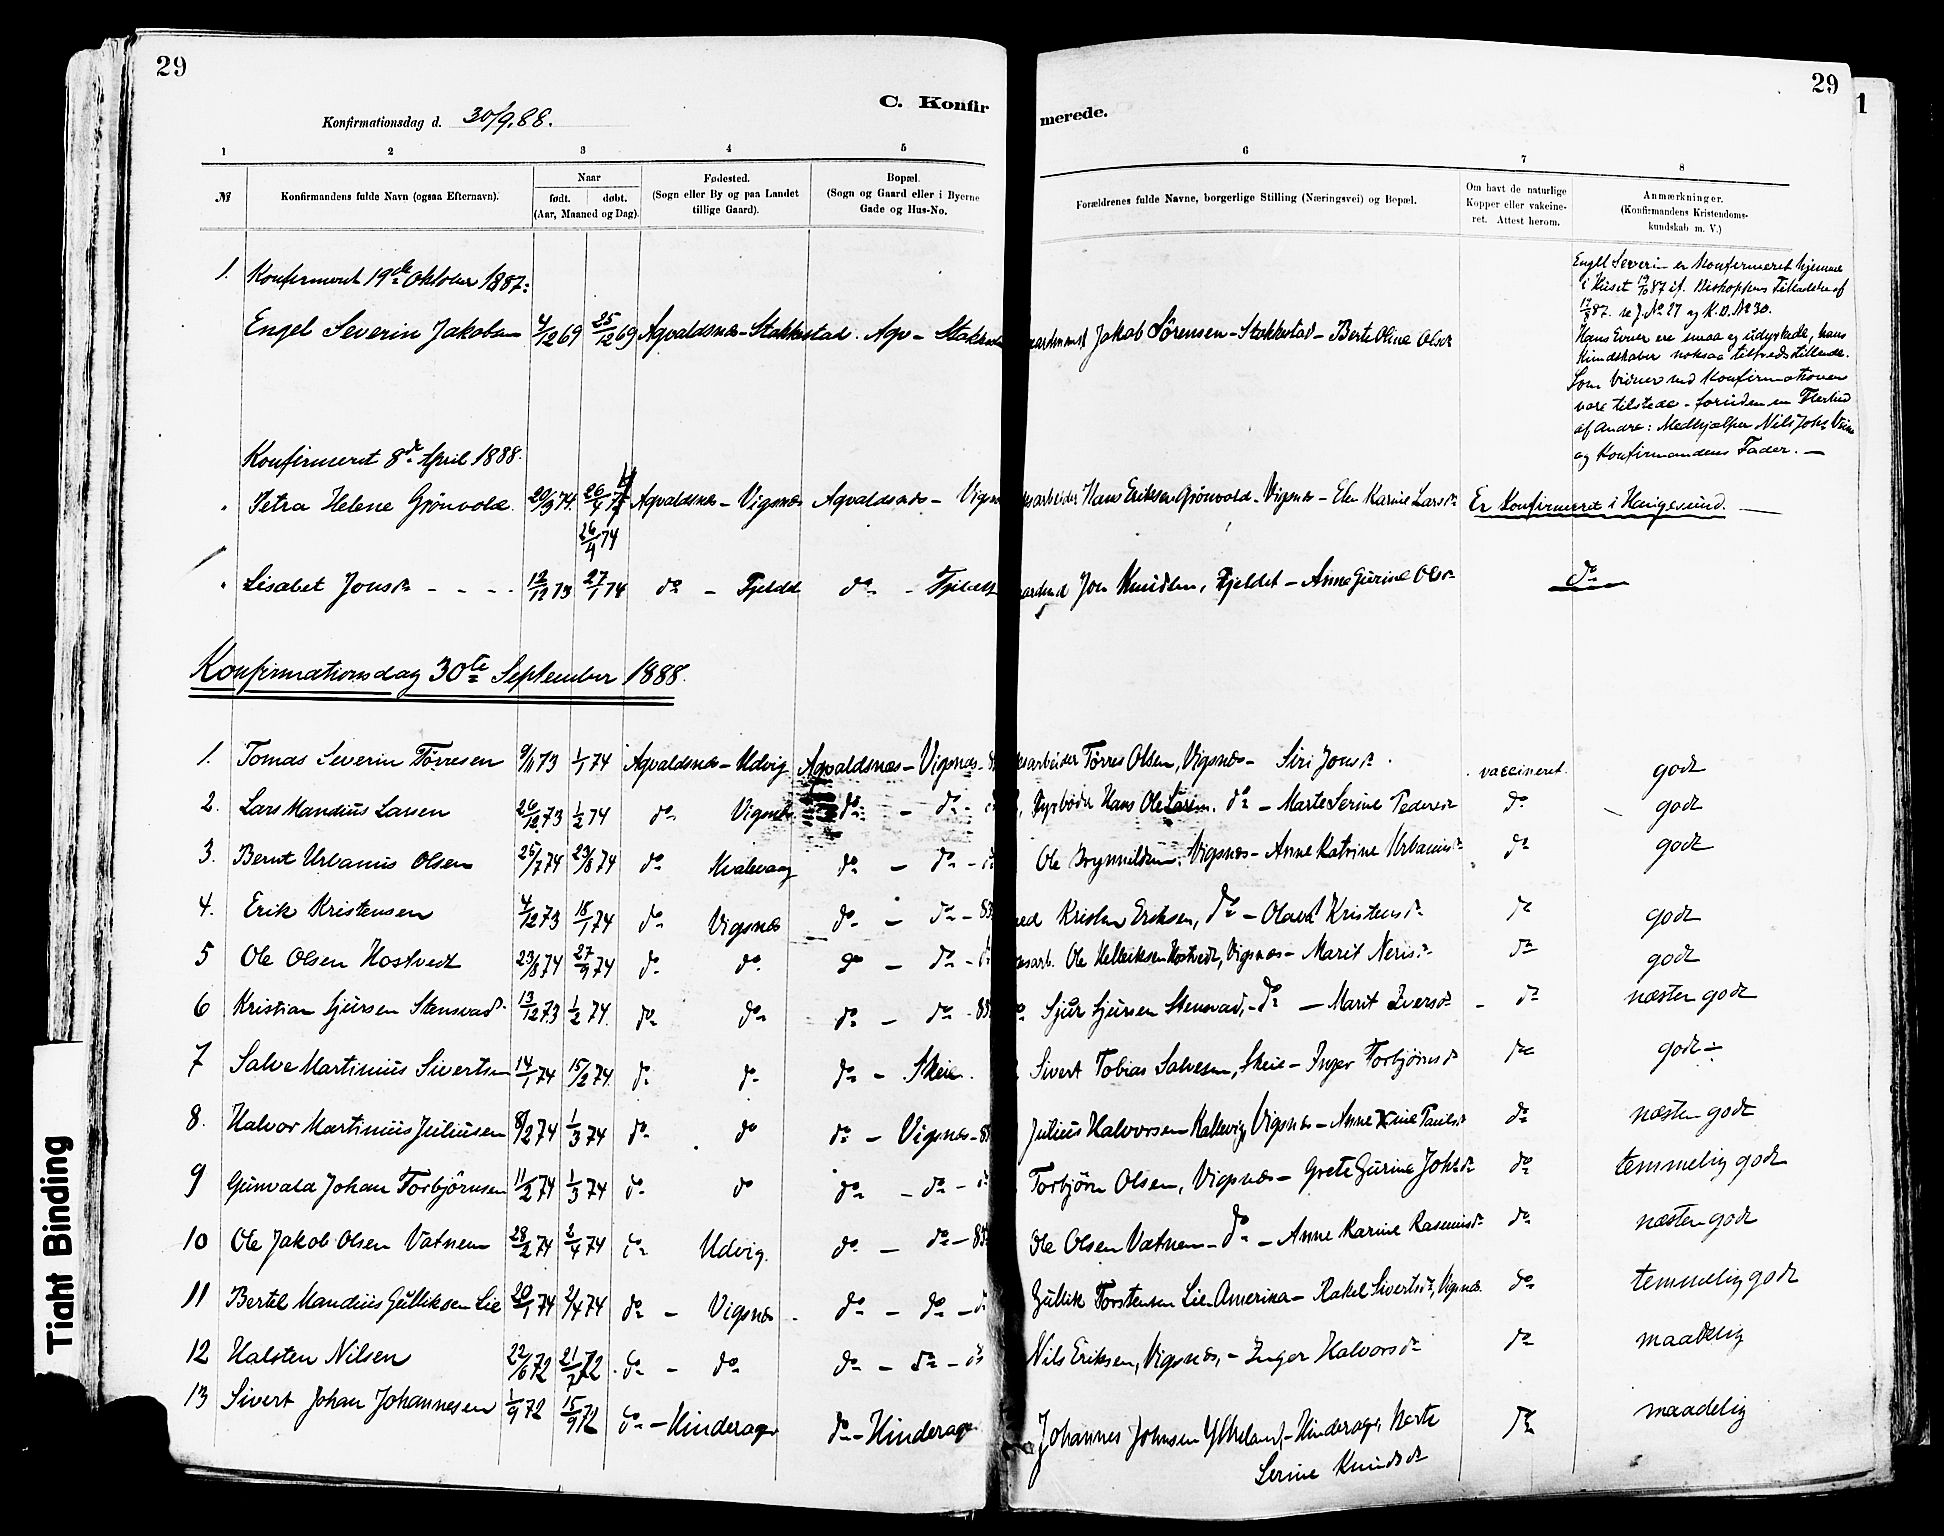 29
29
1
C. Konfir
merede.
Konfirmationsdag d. 30/9.88.
1 2 3 4 5 6 7 8
№
Konfirmandens fulde Navn (ogsaa Efternavn).
Naar
født. døbt.
(Aar, Maaned og Dag).
Fødested.
(Sogn eller By og paa Landet
tillige Gaard).
Bopæl.
(Sogn og Gaard eller i Byerne
Gade og Hus-No.
Forældrenes fulde Navne, borgerlige Stilling (Næringsvei) og Bopæl.
Om havt de naturlige
Kopper eller vakcine-
ret. Attest herom.
Anmærkninger.
(Konfirmandens Kristendoms-
kundskab m. V.)
1. Konfirmeret 19de Oktober 1887:
Engel Severin Jakobsen 4/12 69 25/12 69 Agvaldsnæs - Stokkastad. Agv - Jakob Sörensen - Stokkastad - Berte Oline Olsdr
Engel Severin er Konfirmeret hjemme
i Huset 19/10 87 if. Bishoppens Tilladelse af
No 27 og K.D. No 30.
Hans Evner ere smaa og udyrkede, hans
Kundskaber noksaa tilfredsstillende.
Som Vidner ved Konfirmationen
vare tilstede - foruden en Flerhed
af Andre: Medhjælper Nils Johs
og Konfirmandens Fader. -
Konfirmeret 8de April 1888.
" Petra Helene Grönvold. 20/3 74. 26/4 74 Agvaldsnæs - Vigsnæs Agvaldsnæs - Vigsn arbeider Hans Eriksen Grönvold - Vigsnæs - Karine Larsdr Er Konfirmeret i Haugesund.
26/4 74
" Lisabet Jonsdr - - - - 12/12 73 27/1 74 do - Fjeldet do - Fjeldet Jon Knudsen, Fjeldet - Anne Gurine Olsdr do
Konfirmationsdag 30te September 1888.
1. Tomas Severin Törresen 9/11 73 1/1 74 Agvaldsnæs - Udvig Agvaldsnæs - Vigsnæs - arbeider Törres Olsen, Vigsnæs - Siri Jonsdr. vaccineret. godt
2. Lars Mandius Larsen 26/12 73 1/2 74 do Vigsnæs do - do - Fyrböder Hans Ole Larsen. do - Marte Serine Pedersdr do godt
3. Bernt Urbanus Olsen 25/7 74 23/8 74 do Kvalevaag do - do - Ole Brynnildsen, Vigsnæs - Anne Katrine Urbanusdr do godt
4. Erik Kristensen 4/12 73 18/1 74 do Vigsnæs do - do - Kristen Eriksen, do - Kristensdr do godt
5 Ole Olsen Hostvedt 23/8 74 27/9 74 do do. do - do - arb. Ole Helleiksen Hostvedt, Vigsnæs - Marit Nerisdr do godt
6 Kristian Sjursen Stensvad 13/12 73 1/2 74. do do do - do - Sjur Sjursen Stensvad, - do - Marit Iversdr - do næsten godt
7 Salve Martinius Sivertsen 14/1 74 15/2 74. do do do - Skeie. Sivert Tobias Salvesen, Skeie - Inger Torbjörnsdr do godt ÷
8. Halvor Martinius Juliusen 8/2 74 1/3 74 do do do - Vigsnæs - Julius Halvorsen Kallevig, Vigsnæs - Anne Paulsdr do næsten godt
9 Gunvald Johan Torbjörnsen 11/2 74 1/3 74 do do do - do - Torbjörn Olsen, Vigsnæs - Grete Gurine Johsdr do temmelig godt
10 Ole Jakob Olsen Vatnem 28/2 74 2/4 74 do Udvig. do - do - Ole Olsen Vatnem - do - Anne Karine Rasmusdr do næsten godt
11 Bertel Mandius Gulliksen Lie 20/1 74 2/4 74 do - Vigsnæs. do - do - Gullik Torstensen Lie - Amerika - Rakel Sivertsdr, Vigsnæs. do temmelig godt
12 Halsten Nilsen 22/6 72 21/7 72. do - do do - do - Nils Eriksen, Vigsnæs, - Inger Halvorsdr do maadelig
13 Sivert Johan Johannesen 1/9 72 15/9 72 do - Hinderager do - Hinderage Johannes Johnsen - Hinderager, Marte do maadelig
Serine Knudsdr
Tight Binding